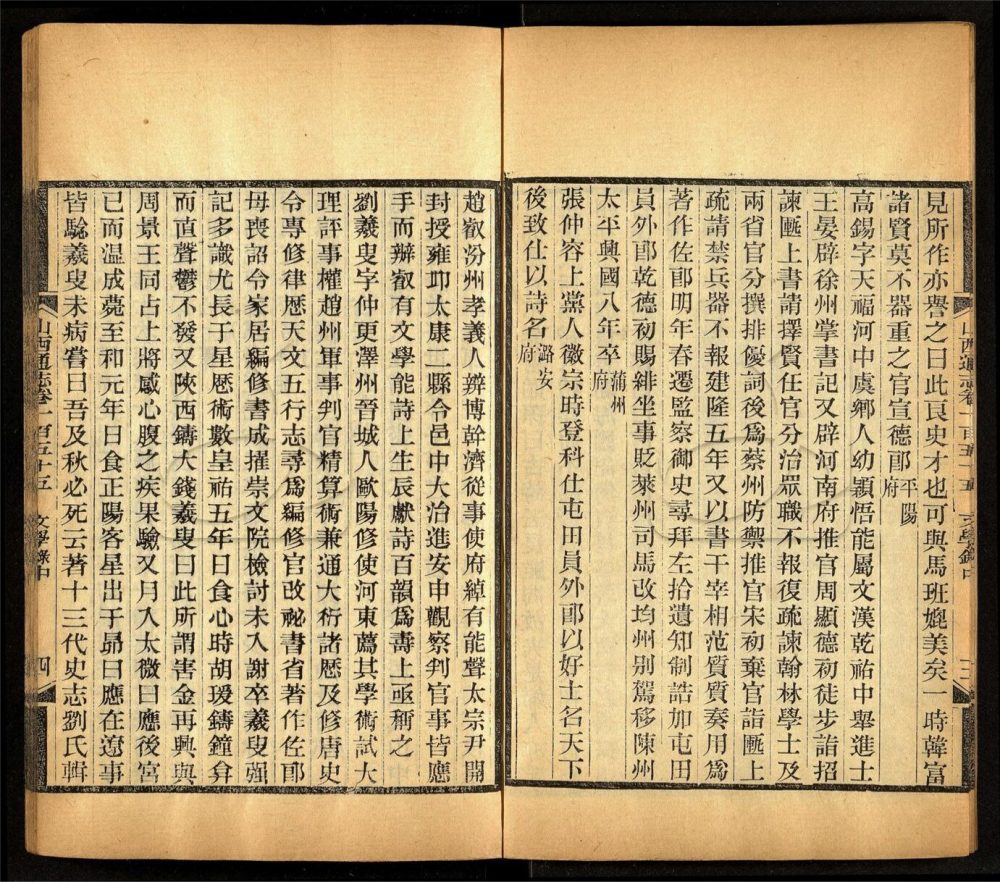 見所作亦譽之曰此良史才也可與馬班媲美矣一時韓富
諸賢莫不器重之官宣德郎平陽府
高錫字天福河中虞鄉人幼穎悟能屬文漢乾祐中舉進士
王晏辟徐州掌書記又辟河南府推官周顯德初徒步詣招
諫匭上書請擇賢任官分治眾職不報復疏諫翰林學士及
兩省官分撰排優詞後爲蔡州防禦推官宋初棄官詣匭上
疏請禁兵器不報建隆五年又以書干宰相范質質奏用爲
著作佐郎明年春遷監察御史尋拜左拾遺知制誥加屯田
員外郎乾德初賜緋坐事貶萊州司馬改均州別駕移陳州
太平興國八年卒蒲州府
張仲容上黨人徽宗時登科仕屯田員外郎以好士名天下
後致仕以詩名潞安府
山西通志卷一百五十五 文學錄中 四
趙叡汾州孝義人辨博幹濟從事使府綽有能聲太宗尹開
封授雍邱太康二縣令邑中大治進安申觀察判官事皆應
手而辨叡有文學能詩上生辰獻詩百韻爲壽上亟稱之
劉羲叟字仲更澤州晉城人歐陽修使河東薦其學術試大
理評事權趙州軍事判官精算術兼通大衍諸歷及修唐史
令專修律歷天文五行志尋爲編修官改祕書省著作佐郎
母喪詔令家居編修書成擢崇文院檢討未入謝卒羲叟强
記多識尤長于星歷術數皇祐五年日食心時胡瑗鑄鐘弇
而直聲鬱不發又陝西鑄大錢羲叟曰此所謂害金再興與
周景王同占上將感心腹之疾果驗又月入太微曰應後宮
已而溫成薨至和元年日食正陽客星出于昴曰應在遼事
皆驗羲叟未病嘗曰吾及秋必死云著十三代史志劉氏輯